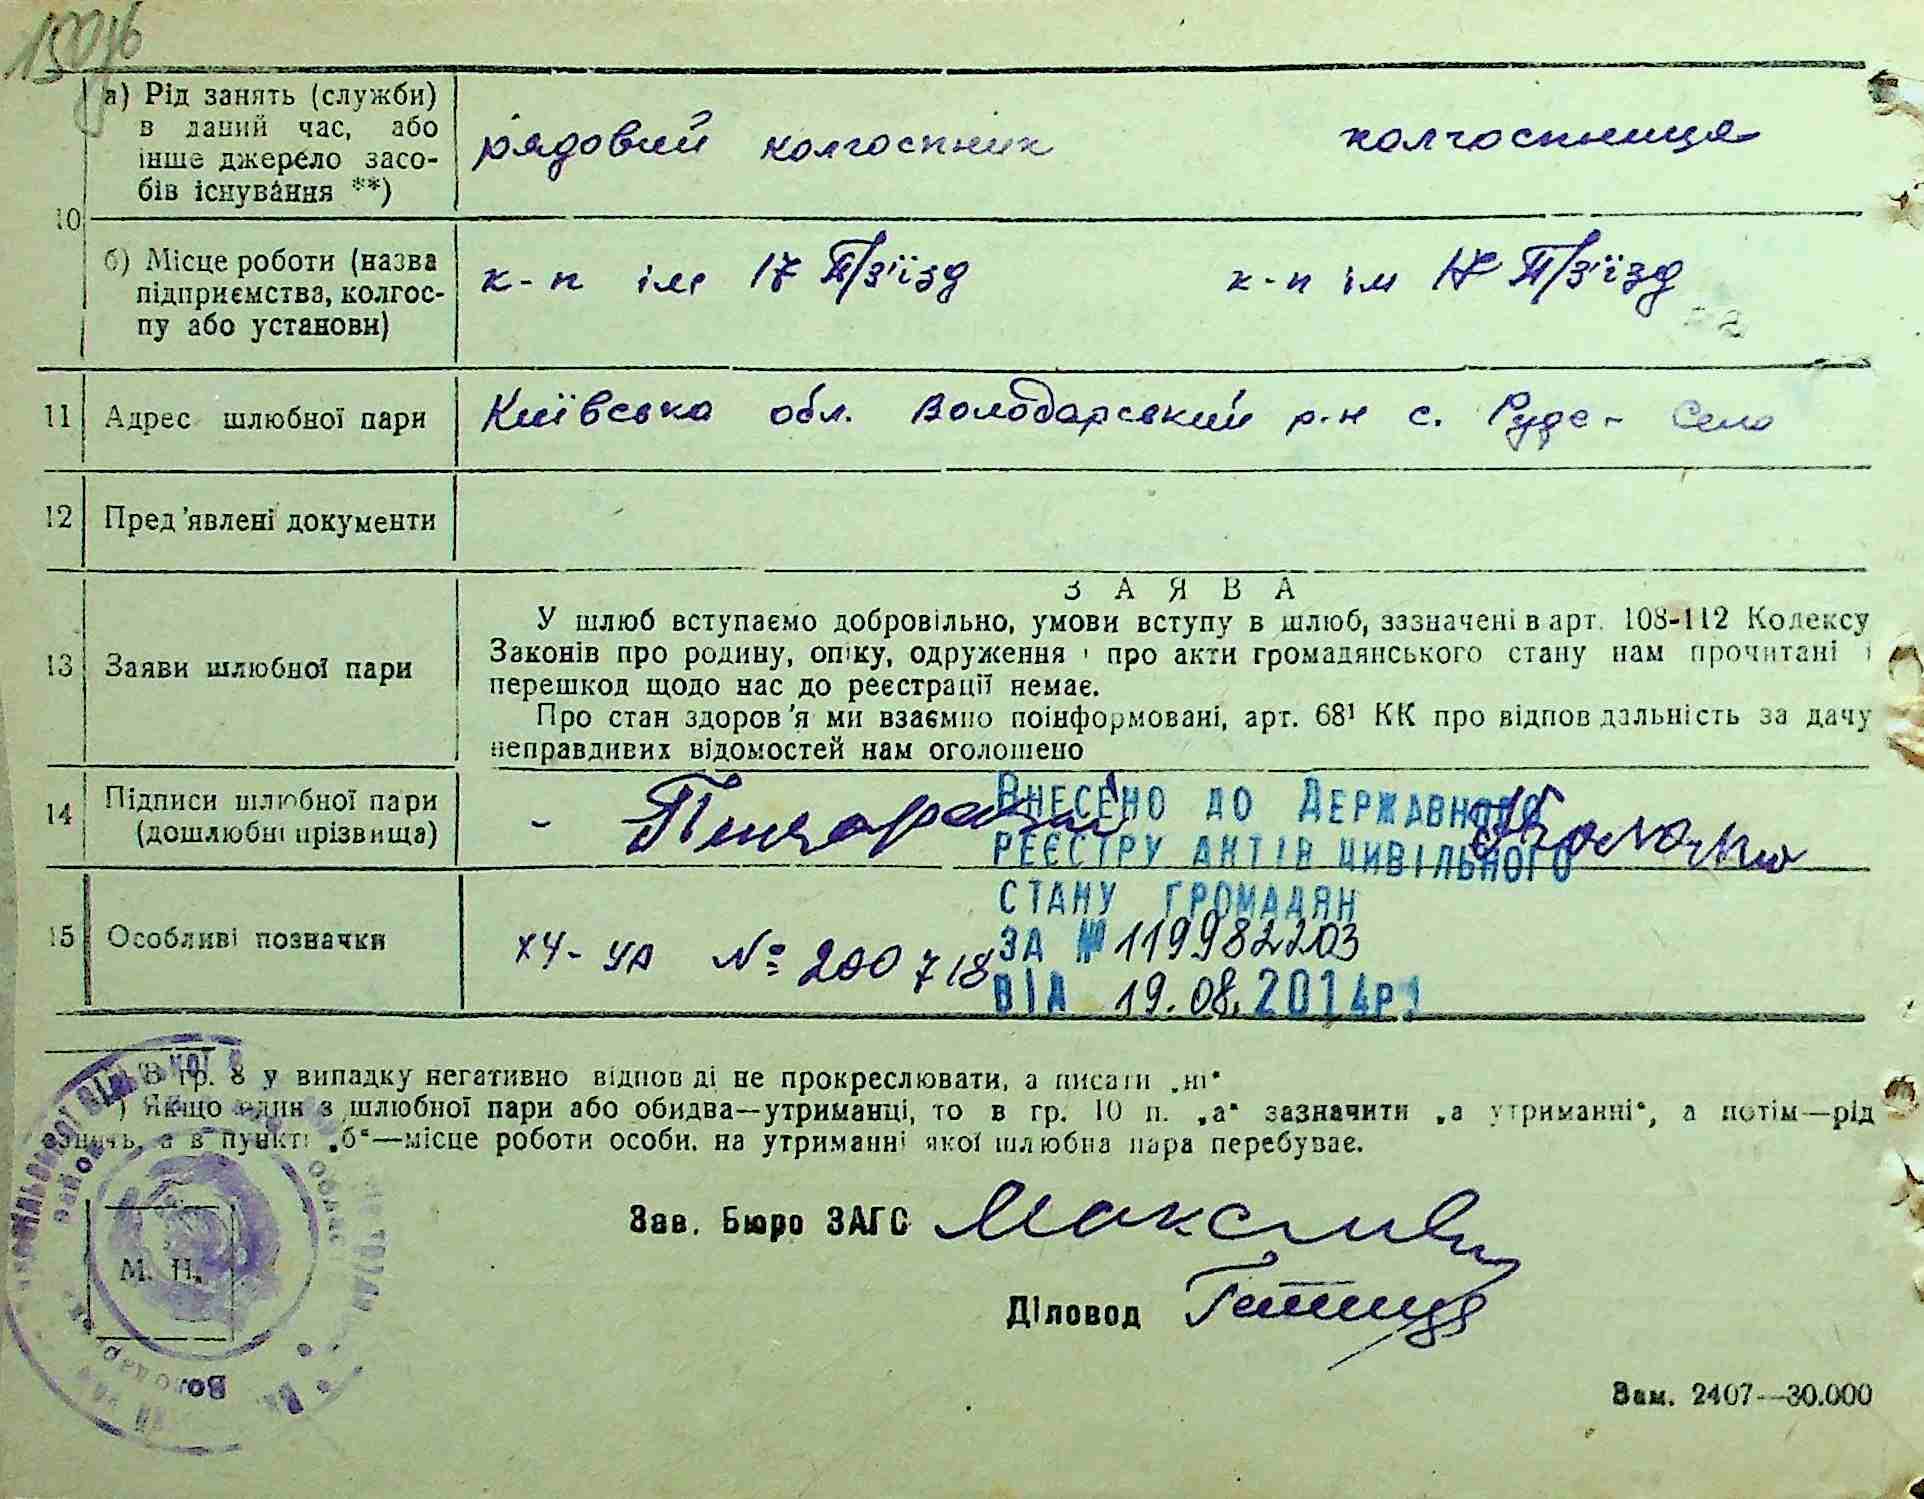 а) Рід занять (служби)
в даний час, або
інше джерело засо-
бів існування **)
рядовий колгоспник колгоспниця
10
б) Місце роботи (назва
підприємства, колгос-
пу або установи)
к-п ім 17 П/з'їзд к-п ім 17 П/з'їзд
11 Адрес шлюбної пари Київська обл. Володарський р-н с. Руде-Село
12 Пред'явлені документи
13 Заяви шлюбної пари
ЗАЯВА
У шлюб вступаємо добровільно, умови вступу в шлюб, зазначені в арт. 108-112 Кодексу
Законів про родину, опіку, одруження і про акти громадянського стану нам прочитані і
перешкод щодо нас до реєстрації немає.
Про стан здоров'я ми взаємно поінформовані, арт. 68¹ КК про відповідальність за дачу
неправдивих відомостей нам оголошено
14 Підписи шлюбної пари
(дошлюбні прізвища)
Внесено до Державного
реєстру актів цивільного
стану громадян
за № 119982203
від 19.08.2014р.
15 Особливі позначки ХЧ-УА № 200718
В гр. 8 у випадку негативно відпов ді не прокреслювати, а писати „ні“
) Якщо один з шлюбної пари або обидва—утриманці, то в гр. 10 п. „а“ зазначити „а утриманні“, а потім—рід
занять, а в пункті „б“—місце роботи особи, на утриманні якої шлюбна пара перебуває.
М. П.
Зав. Бюро ЗАГС
Діловод
Зам. 2407—30.000